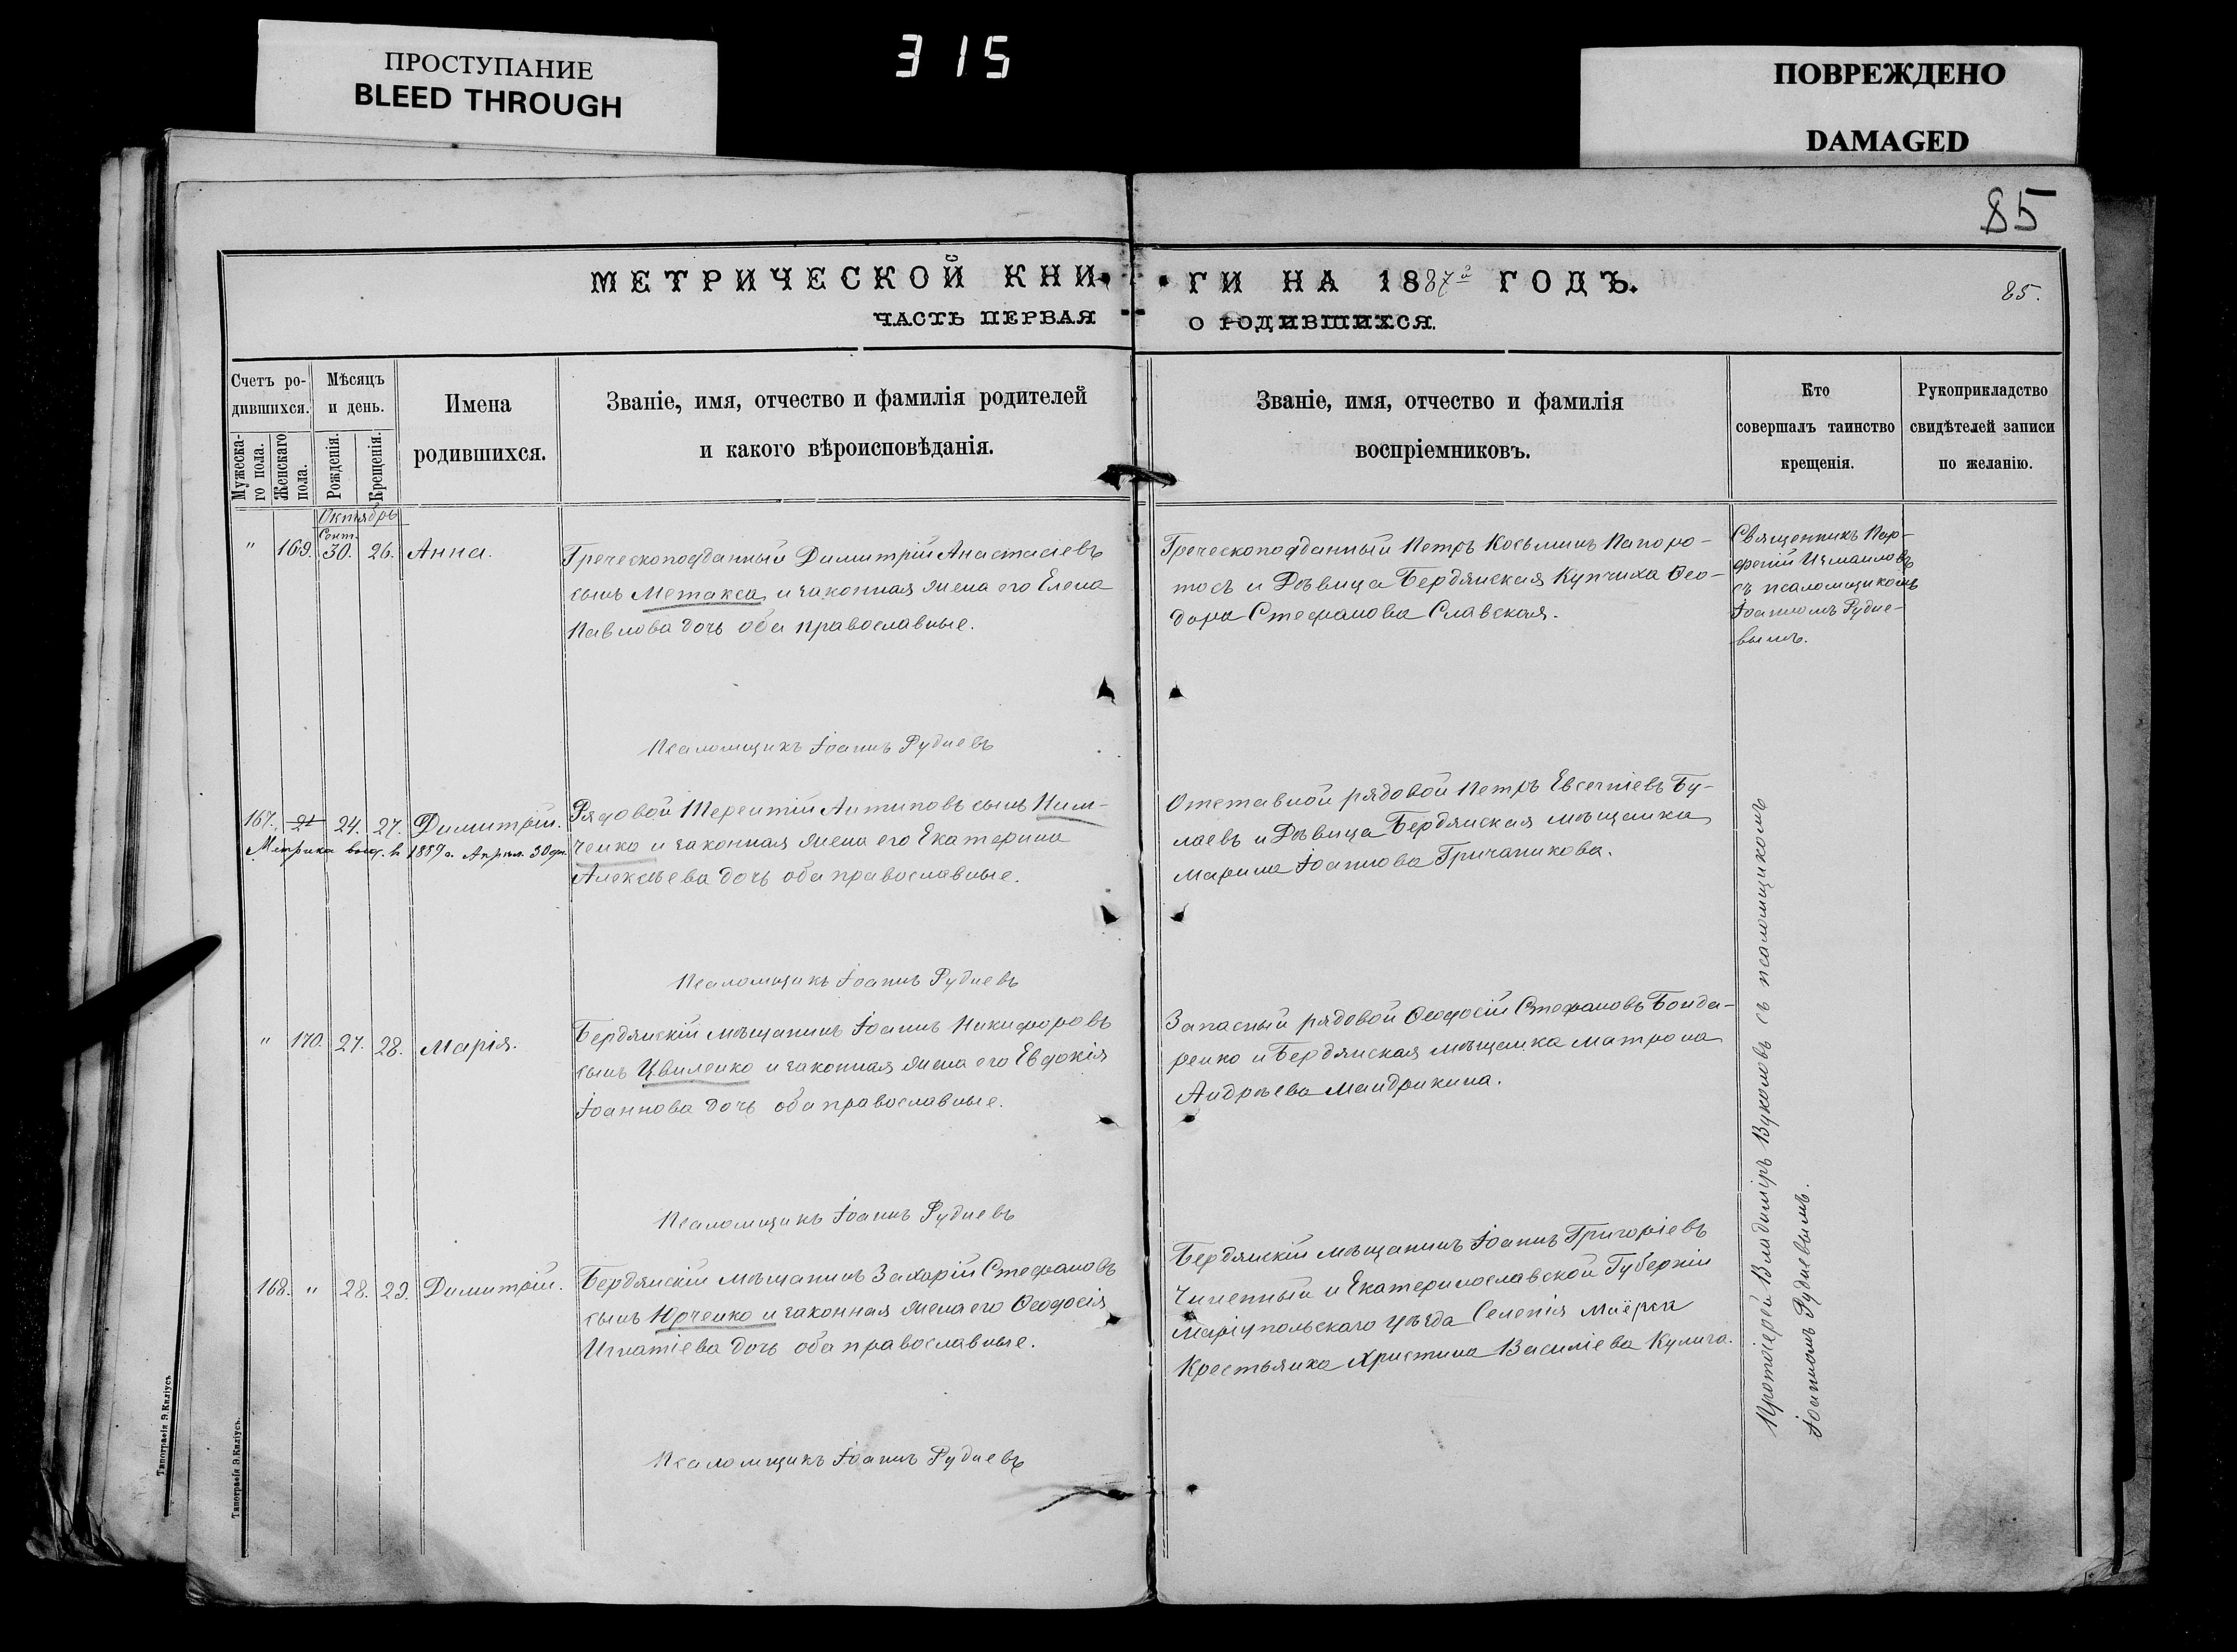 ПРОСТУПАНИЕ
BLEED THROUGH
315
ПОВРЕЖДЕНО
DAMAGED
85
МЕТРИЧЕСКОЙ КНИ-
ГИ НА 1887й ГОДЪ.
85.
ЧАСТЬ ПЕРВАЯ
О РОДИВШИХСЯ.
Счетъ ро-
дившихся.
Мужеска-
го пола.
Женскаго
пола.
Мѣсяцъ
и день.
Рожденія.
Крещенія.
Имена
родившихся.
Званіе, имя, отчество и фамилія родителей
и какого вѣроисповѣданія.
Званіе, имя, отчество и фамилія
воспріемниковъ.
Кто
совершалъ таинство
крещенія.
Рукоприкладство
свидѣтелей записи
по желанію.
Октябрь
Сент.
" 169. 30. 26. Анна.
Греческоподданный Димитрій Анастасіевъ
сынъ Метакса и законная жена его Елена
Павлова дочь оба православные.
Греческоподданный Петръ Косьминъ Папоро-
тосъ и Дѣвица Бердянская Купчиха Ѳео-
дора Стефанова Славская.
Священникъ Пор-
фирій Измаиловъ
съ псаломщикомъ
Іоанномъ Рудне-
вымъ.
Псаломщикъ Іоаннъ Рудневъ
167. 24. 27. Димитрій.
Метрика выд. в 1889 г. Апрѣл. 30 дн.
Рядовой Терентій Антиповъ сынъ Ним-
ченко и законная жена его Екатерина
Алексѣева дочь оба православные.
Отставной рядовой Петръ Евсегніевъ Бу-
лаевъ и Дѣвица Бердянская мѣщанка
Марина Іоаннова Гричаникова.
Псаломщикъ Іоаннъ Рудневъ
" 170. 27. 28. Марія.
Бердянскій мѣщанинъ Іоаннъ Никифоровъ
сынъ Цвиленко и законная жена его Евдокія
Іоаннова дочь оба православные.
Запасный рядовой Ѳеодосій Стефановъ Бонда-
ренко и Бердянская мѣщанка Матрона
Андрѣева Мандрикина.
Псаломщикъ Іоаннъ Рудневъ
168. " 28. 29. Димитрій.
Бердянскій мѣщанинъ Захарій Стефановъ
сынъ Юрченко и законная жена его Ѳеодосія
Игнатіева дочь оба православные.
Бердянскій мѣщанинъ Іоаннъ Григоріевъ
Чиненный и Екатеринославской Губерніи
Маріупольскаго уѣзда Селенія Маіорска
Крестьянка Христина Василіева Кулига.
Псаломщикъ Іоаннъ Рудневъ
Протоіерей Владимиръ Вуколовъ съ псаломщикомъ
Іоанномъ Рудневымъ.
Типографія Э.Киліусъ.
Типографія Э.Киліусъ.